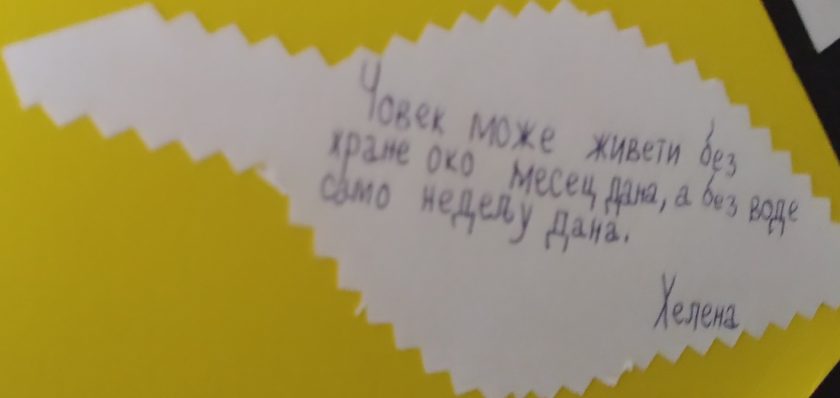 Човек може живети без
хране око месец дана, а без воде
само недељу дана.
Хелена